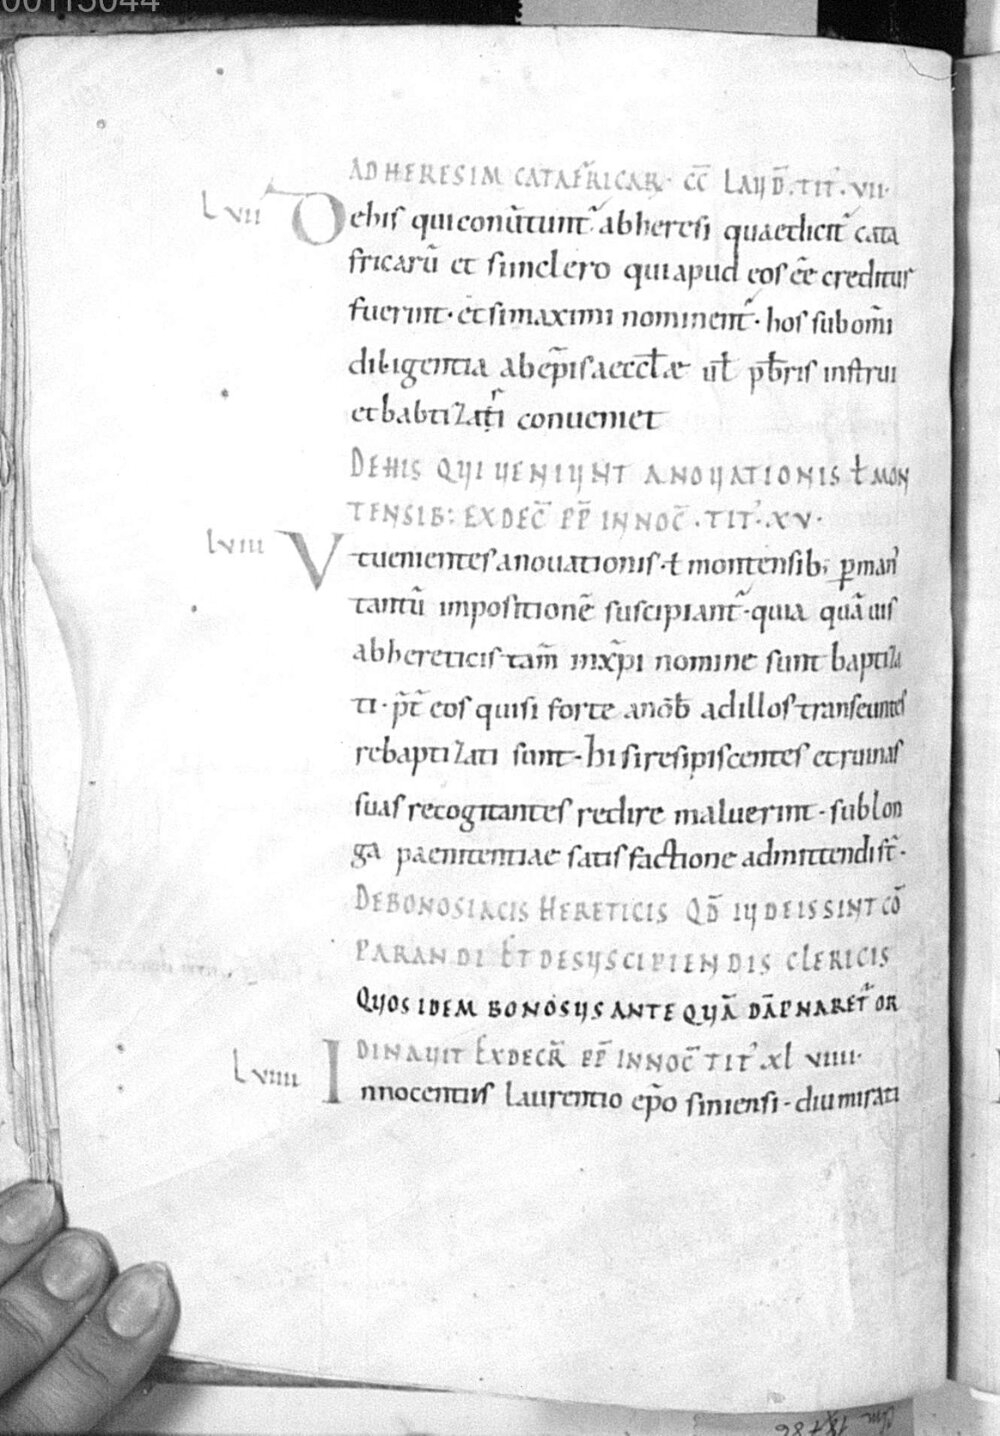 00113044
AD HERESIM CATAFRICAR. CC̄ LAUD̄. TIT̄. VII.
LVII Debis qui conūtunt᷑ ab heresi quae dicit᷑ cata
fricarū et sunclero qui apud eos ēe creditus
fuerint. et si maximi nominent᷑. hos sub om̄i
diligentia ab ep̄is aeccłae ul̄ pb̄ris instrui
et babtizari conueniet
DE HIS QUI UENIUNT A NOUATIONIS ł MON
TENSIB: EX DEC̄ PP̄ INNOC̄. TIT̄. XV.
LVIII Vt uenientes a nouationis. ł montensib; ꝑ man᷑
tantū impositionē suscipiant᷑. quia quāuis
ab hereticis tam̄ in xp̄i nomine sunt baptiza
ti. p̄t̄ eos qui si forte a nob̄ ad illos transeuntes
rebaptizati sunt. hi si resipiscentes et ruinas
suas recogitantes redire maluerint. sub lon
ga paenitentiae satisfactione admittendi st̄.
DE BONOSIACIS HERETICIS QD̄ IUDEIS SINT CŌ
PARANDI ET DE SUSCIPIENDIS CLERICIS
QUOS IDEM BONOSUS ANTE QUĀ DĀPNARET᷑ OR
DINAUIT EX DECR̄ PP̄ INNOC̄ TIT̄ XL VIIII.
LVIIII Innocentius Laurentio ep̄o siniensi. diu mirati
Clm 18786